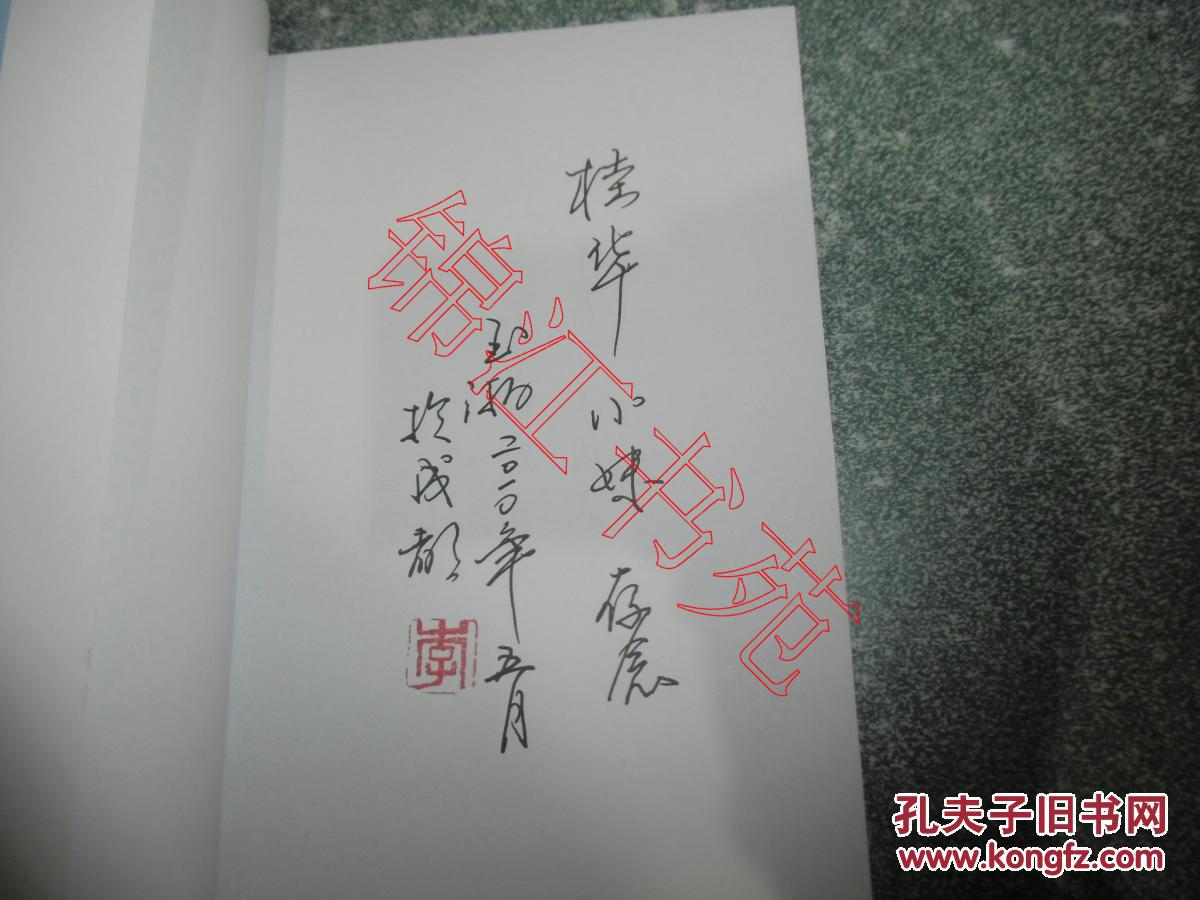 桂华
小妹
存念
二〇一〇年五月
於成都
李
锦江书苑
孔夫子旧书网
www.kongfz.com